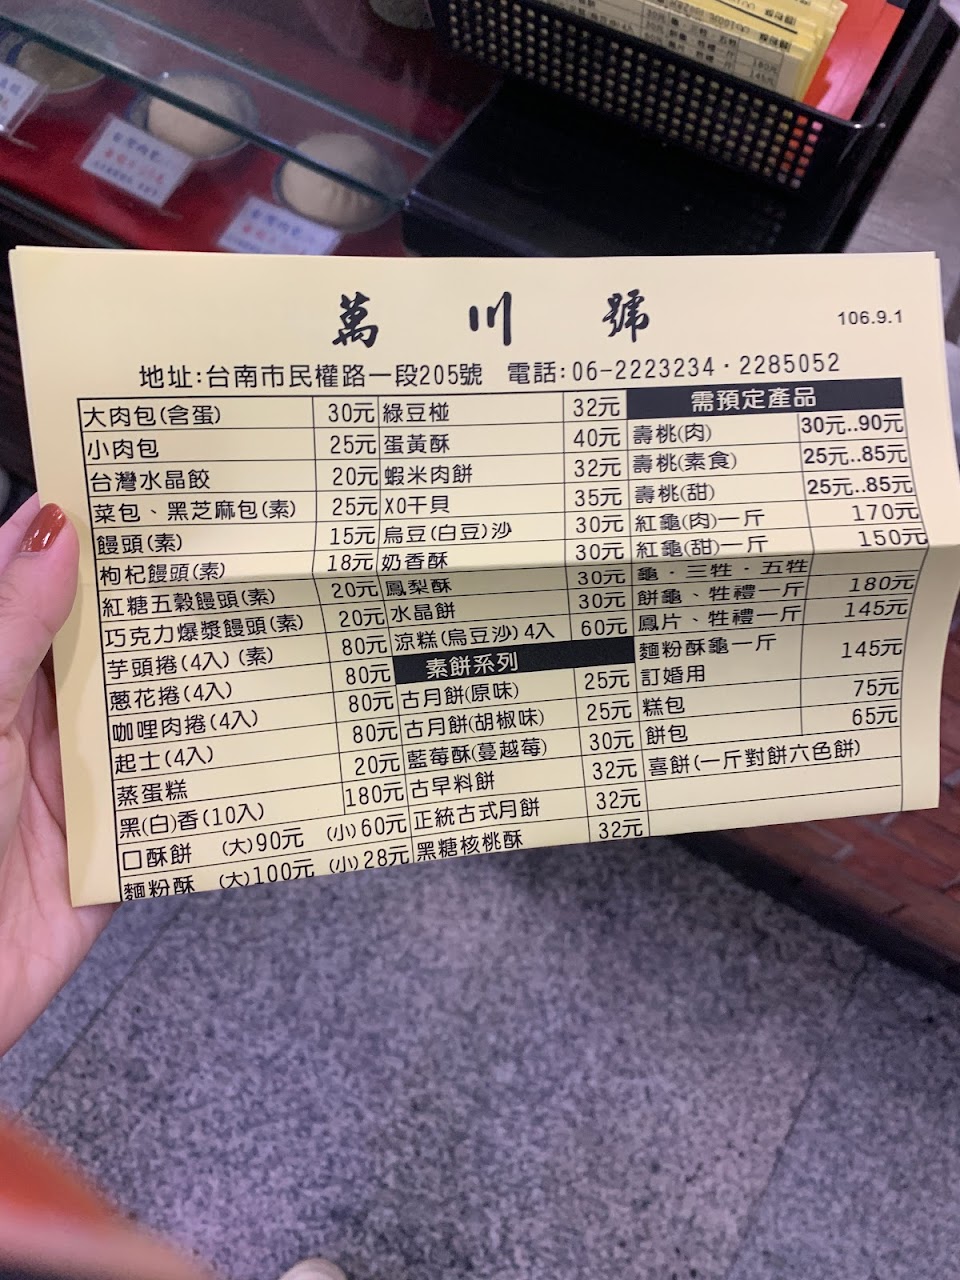 萬川號
106.9.1
地址:台南市民權路一段205號 電話:06-2223234·2285052
大肉包(含蛋) 30元
小肉包 25元
台灣水晶餃 20元
菜包、黑芝麻包(素) 25元
饅頭(素) 15元
枸杞饅頭(素) 18元
紅糖五穀饅頭(素) 20元
巧克力爆漿饅頭(素) 20元
芋頭捲(4入)(素) 80元
蔥花捲(4入) 80元
咖哩肉捲(4入) 80元
起士(4入) 80元
蒸蛋糕 20元
黑(白)香(10入) 180元
口酥餅 (大)90元 (小)60元
麵粉酥 (大)100元 (小)28元
綠豆椪 32元
蛋黃酥 40元
蝦米肉餅 32元
XO干貝 35元
烏豆(白豆)沙 30元
奶香酥 30元
鳳梨酥 30元
水晶餅 30元
涼糕(烏豆沙)4入 60元
素餅系列
古月餅(原味) 25元
古月餅(胡椒味) 25元
藍莓酥(蔓越莓) 30元
古早料餅 32元
正統古式月餅 32元
黑糖核桃酥 32元
需預定產品
壽桃(肉) 30元..90元
壽桃(素食) 25元..85元
壽桃(甜) 25元..85元
紅龜(肉)一斤 170元
紅龜(甜)一斤 150元
龜·三牲·五牲
餅龜、牲禮一斤 180元
鳳片、牲禮一斤 145元
麵粉酥龜一斤 145元
訂婚用
糕包 75元
餅包 65元
喜餅(一斤對餅六色餅)